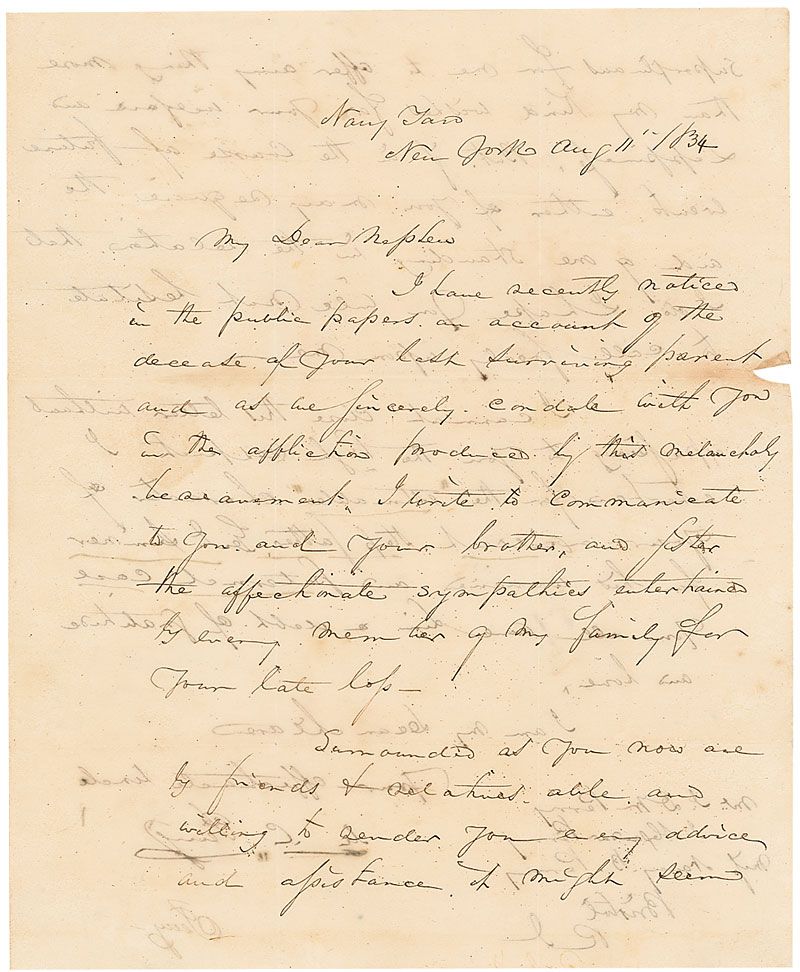 Navy Yard
New York Aug 11" 1834
My Dear Nephew
I have recently noticed
in the public papers an account of the
decease of your last surviving parent
and as we sincerely condole with you
in the affliction produced by this melancholy
bereavement, I write to communicate
to you and your brother, and sister
the affectionate sympathies entertained
by every member of my family for
your late loss—
Surrounded as you now are
by friends & relatives able and
willing to render you every advice
and assistance it might seem